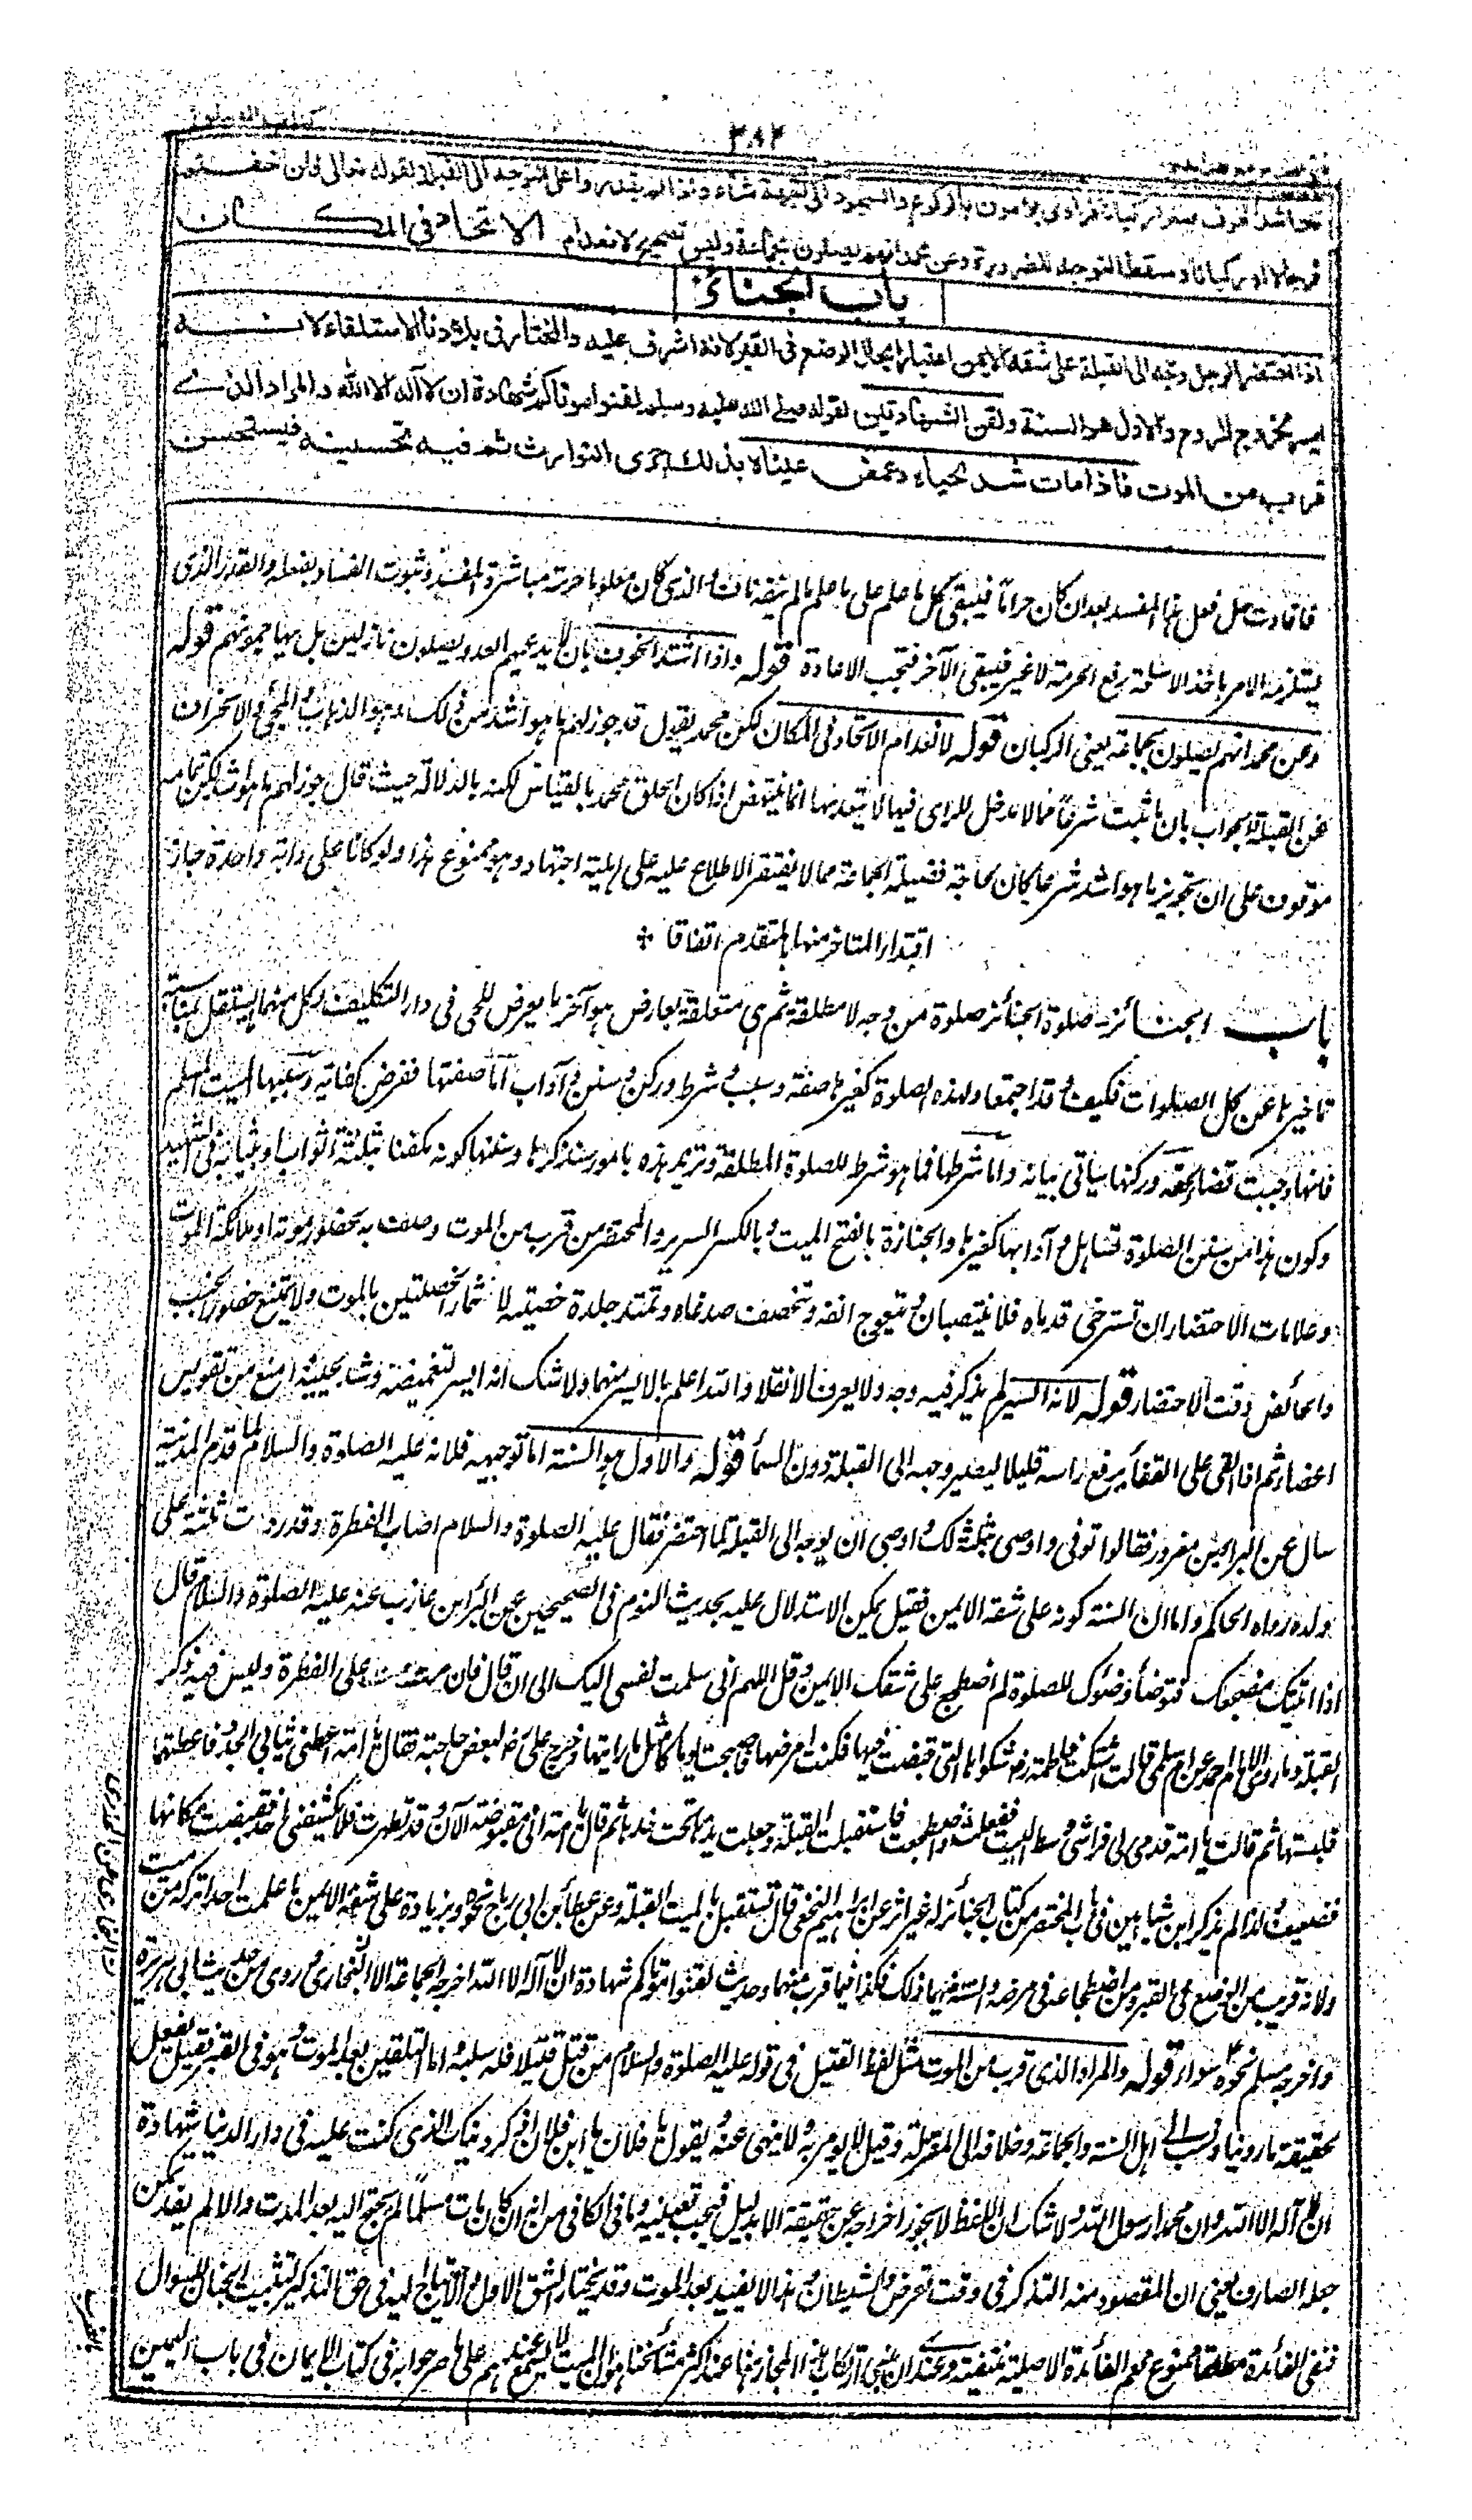 ٣٨٢
فان اشتد الخوف صلوا ركبانا فرادى يؤمون بالركوع والسجود الى اى جهة شاءوا اذا لم يقدروا على التوجه الى القبلة لقوله تعالى فان خفتم
فرجالا او ركبانا وسقط التوجه للضرورة وعن محمد انهم يصلون بجماعة وليس بصحيح لانعدام الاتحاد فى المكان
باب الجنائز
اذا احتضر الرجل وجه الى القبلة على شقه الايمن اعتبارا بحال الوضع فى القبر لانه اشرف عليه والمختار فى بلادنا الاستلقاء لانه
ايسر لخروج الروح والاول هو السنة ولقن الشهادتين لقوله صلى الله عليه وسلم لقنوا موتاكم شهادة ان لا اله الا الله والمراد الذى
قرب من الموت فاذا مات شد لحياه وغمض عيناه بذلك جرى التوارث ثم فيه تحسينه فيستحسن
فافادت حل فعل هذا المفسد بعد ان كان حراما فيبقى كل ما علم على ما علم ما لم ينفه ناف والذى كان معلوما حرمة مباشرة المفسد وثبوت الفساد بفعله والقدر الذى
يستلزمه الامر باخذ الاسلحة رفع الحرمة لا غير فيبقى الآخر فتجب الاعادة قوله واذا اشتد الخوف بان لا يدعهم العدو يصلون نازلين بل يهاجمونهم قوله
وعن محمد انهم يصلون بجماعة يعنى الركبان قوله لانعدام الاتحاد فى المكان لكن محمد يقول قد جوز لهم ما هو اشد من ذلك وهو الذهاب والمجئ والانحراف
عن القبلة والجواب بان ما ثبت شرعا مما لا مدخل للراى فيها لا يتعد بها انما ينتهض اذا كان الحاق محمد بالقياس لكنه بالدلالة حيث قال جوز لهم ما هو اشد لكن تمامه
موقوف على ان تجويز ما هو اشد شرعا كان لحاجة فضيلة الجماعة مما لا يفتقر الاطلاع عليه على اهلية اجتهاد وهو ممنوع هذا ولو كانا على دابة واحدة جاز
اقتداء المتاخر منهما بالمتقدم اتفاقا +
باب الجنائز - صلوة الجنائز صلوة من وجه لا مطلقة ثم هى متعلقة بعارض هو آخر ما يعرض للحى فى دار التكليف وكل منهما يستقل بمناسبة
تاخيرها عن كل الصلوات فكيف وقد اجتمعا ولهذه الصلوة كغيرها صفة وسبب وشرط وركن وسنن وآداب اما صفتها ففرض كفاية وسببها الميت المسلم
فانها وجبت قضاء لحقه وركنها سياتى بيانه واما شرطها فما هو شرط للصلوة المطلقة وتزيد هذه بامور سنذكرها وسننها كونه مكفنا بثلثة اثواب او بثيابه فى الشهيد
وكون هذا من سنن الصلوة تساهل وآدابها كغيرها والجنازة بالفتح الميت وبالكسر السرير والمحتضر من قرب من الموت وصف به لحضور موته او ملائكة الموت
وعلامات الاحتضار ان تسترخى قدماه فلا ينتصبان ويتعوج انفه وتنخسف صدغاه وتمتد جلدة خصيتيه لانشمار الخصيتين بالموت ولا يمتنع حضور الجنب
والحائض وقت الاحتضار قوله لانه ايسر لم يذكر فيه وجه ولا يعرف الا نقلا والله اعلم بالايسر منهما ولا شك انه ايسر لتغميضه وشد لحييه وامنع من تقويس
اعضائه ثم اذا القى على القفا يرفع راسه قليلا ليصير وجهه الى القبلة دون السماء قوله والاول هو السنة اما توجيهه فلانه عليه الصلوة والسلام لما قدم المدينة
سال عن البراء بن معرور فقالوا توفى واوصى بثلثه لك واوصى ان يوجه الى القبلة لما احتضر فقال عليه الصلوة والسلام اصاب الفطرة وقد رددت ثلثه على
ولده رواه الحاكم واما ان السنة كونه على شقه الايمن فقيل يمكن الاستدلال عليه بحديث النوم فى الصحيحين عن البراء بن عازب عنه عليه الصلوة والسلام قال
اذا اتيت مضجعك فتوضأ وضوءك للصلوة ثم اضطجع على شقك الايمن وقل اللهم انى سلمت نفسى اليك الى ان قال فان مت مت على الفطرة وليس فيه ذكر
القبلة وما روى الامام احمد عن ام سلمى قالت اشتكت فاطمة رض شكواها التى قبضت فيها فكنت امرضها فاصبحت يوما كامثل ما رايتها وخرج على رض لبعض حاجته فقالت يا امه اعطنى ثيابى الجدد فاعطيتها
فلبستها ثم قالت يا امه قدمى لى فراشى وسط البيت ففعلت واضطجعت فاستقبلت القبلة وجعلت يدها تحت خدها ثم قالت يا امه انى مقبوضة الآن وقد تطهرت فلا يكشفنى احد فقبضت مكانها
فضعيف ولذا لم يذكر ابن شاهين فى باب المحتضر من كتاب الجنائز له غير اثر عن ابراهيم النخعى قال تستقبل بالميت القبلة وعن عطاء بن ابى رباح نحوه بزيادة على شقه الايمن ما علمت احدا تركه من ميت
ولانه قريب من الوضع فى القبر ومن اضطجاعه فى مرضه والسنة فيهما ذلك فكذا فيما قرب منهما وحديث لقنوا موتاكم شهادة ان لا اله الا الله اخرجه الجماعة الا البخارى وروى من حديث ابى هريرة
واخرجه مسلم نحوه سواء قوله والمراد الذى قرب من الموت مثل لفظ القتيل فى قوله عليه الصلوة والسلام من قتل قتيلا فله سلبه واما التلقين بعد الموت وهو فى القبر فقيل يفعل
لحقيقة ما روينا ونسب الى اهل السنة والجماعة وخلافه الى المعتزلة وقيل لا يؤمر به ولا ينهى عنه ويقول يا فلان يا ابن فلان اذكر دينك الذى كنت عليه فى دار الدنيا شهادة
ان لا اله الا الله وان محمدا رسول الله ولا شك ان اللفظ لا يجوز اخراجه عن حقيقته الا بدليل فيجب تعيينه وما فى الكافى من انه ان كان مات مسلما لم يحتج اليه بعد الموت والا لم يفد يمكن
جعله الصارف يعنى ان المقصود منه التذكر فى وقت تعرض الشيطان وهذا لا يفيد بعد الموت وقد يختار الشق الاول والاحتياج اليه فى حق التذكير لتثبيت الجنان للسؤال
فنفى الفائدة مطلقا ممنوع نعم الفائدة الاصلية منتفية وعندى ان مبنى ارتكاب هذا المجاز هنا عند اكثر مشائخنا هو ان الميت لا يسمع عندهم على ما صرحوا به فى كتاب الايمان فى باب اليمين